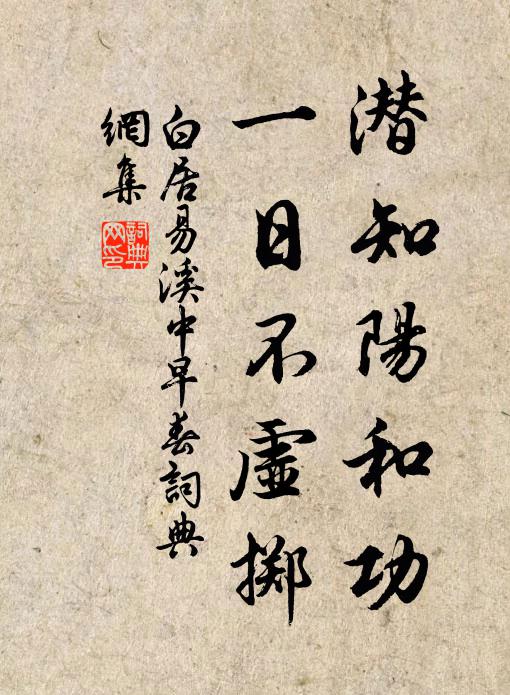 潜知陽和功
一日不虛擲
白居易溪中早春詞典
網集
詞典
网印